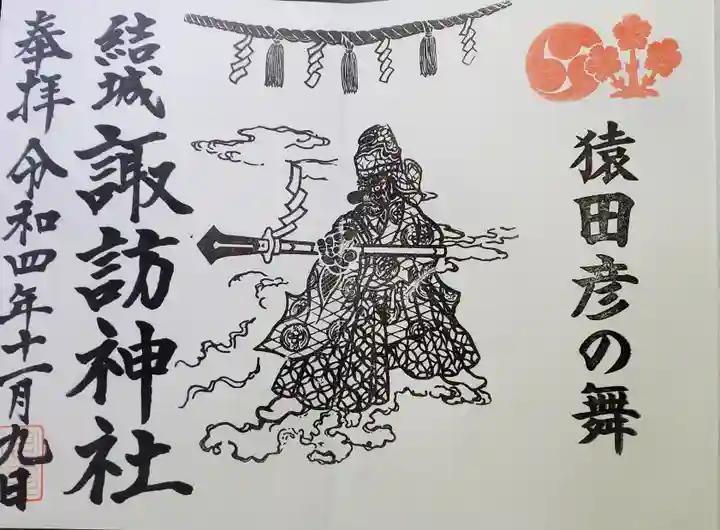 猿田彦の舞
結城 諏訪神社
奉拝 令和四年十一月九日